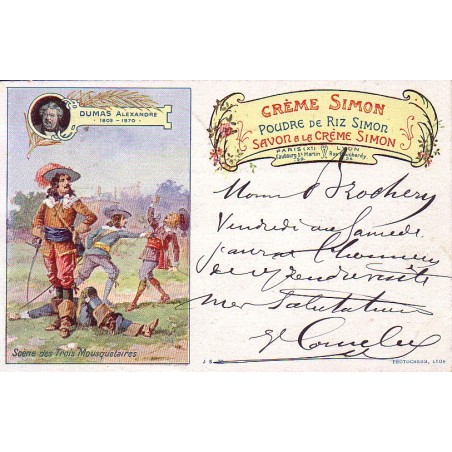 DUMAS ALEXANDRE
1803 - 1870
Scène des Trois Mousquetaires
CRÈME SIMON
POUDRE DE RIZ SIMON
SAVON À LA CRÈME SIMON
PARIS (X) LYON
Faubourg St Martin
Vendredi ou Samedi
j'aurai l'honneur
de vs rendre visite
mes Salutations
J S
PHOTOCHROM, LYON